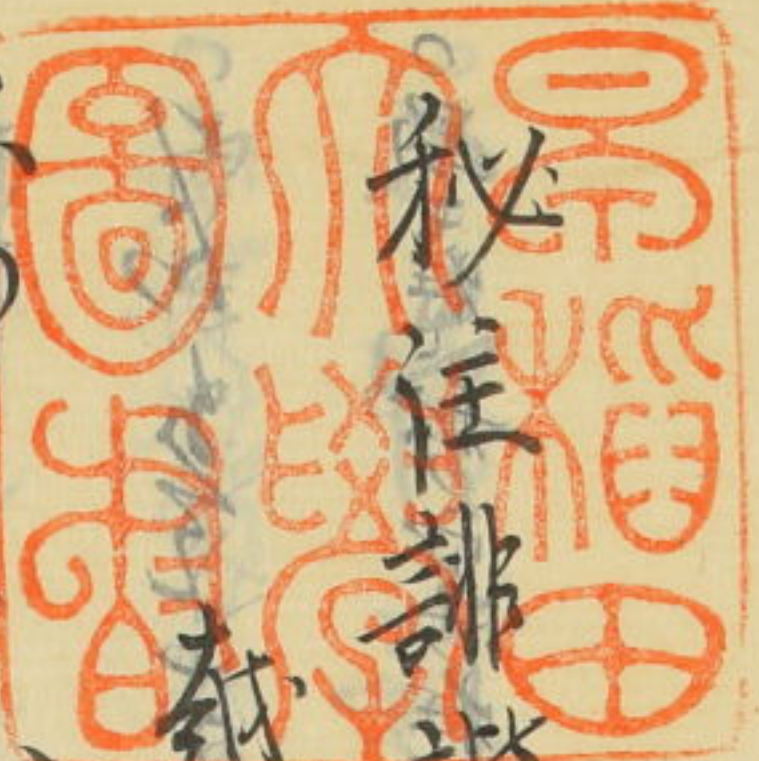 早稲田
大學
圖書
秘注誹諧